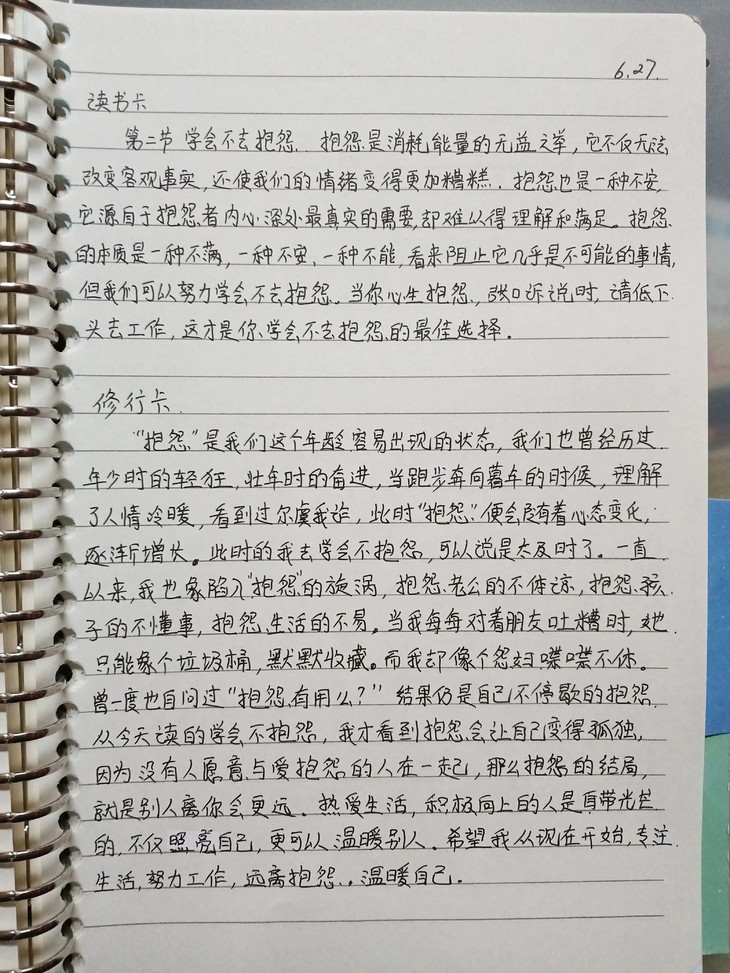 6.27.
读书卡
第二节 学会不去抱怨. 抱怨是消耗能量的无益之举,它不仅无法
改变客观事实,还使我们的情绪变得更加糟糕. 抱怨也是一种不安,
它源自于抱怨者内心深处最真实的需要,却难以得理解和满足。抱怨
的本质是一种不满,一种不安、一种不能,看来阻止它几乎是不可能的事情,
但我们可以努力学会不去抱怨。当你心生抱怨,张口诉说时,请低下
头去工作,这才是你学会不去抱怨的最佳选择。
修行卡.
“抱怨”是我们这个年龄容易出现的状态,我们也曾经历过
年少时的轻狂,壮年时的奋进,当跑步奔向暮年的时候,理解
了人情冷暖,看到过尔虞我诈,此时“抱怨”便会随着心态变化,
逐渐增长。此时的我去学会不抱怨,可以说是太及时了。一直
以来,我也象陷入“抱怨”的旋涡,抱怨老公的不体谅,抱怨孩
子的不懂事,抱怨生活的不易。当我每每对着朋友吐糟时,她
只能象个垃圾桶,默默收藏。而我却像个怨妇喋喋不休。
曾一度也自问过“抱怨有用么?”结果仍是自己不停歇的抱怨.
从今天读的学会不抱怨,我才看到抱怨会让自己变得孤独,
因为没有人愿意与爱抱怨的人在一起,那么抱怨的结局,
就是别人离你会更远。热爱生活,积极向上的人是自带光芒
的,不仅照亮自己,更可以温暖别人。希望我从现在开始,专注
生活,努力工作,远离抱怨..温暖自己.